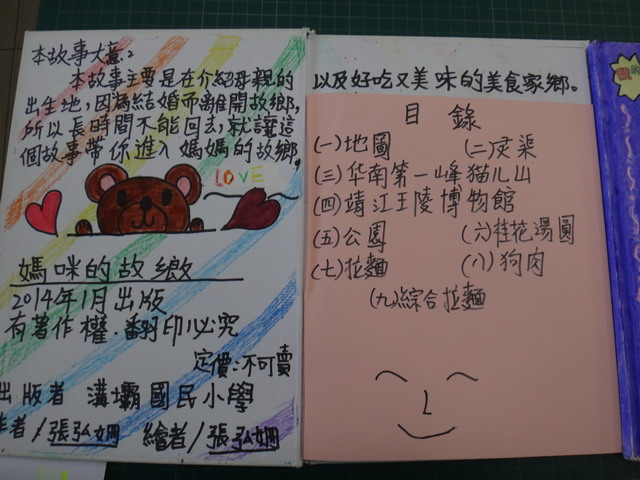 本故事大意：
本故事主要是在介紹母親的
出生地，因為結婚而離開故鄉，
所以長時間不能回去，就讓這
個故事帶你進入媽媽的故鄉，
LOVE
媽咪的故鄉
2014年1月出版
有著作權．翻印必究
定價：不可賣
出版者 溝壩國民小學
作者/張弘姍 繪者/張弘姍
以及好吃又美味的美食家鄉。
目錄
(一)地圖 (二)灵渠
(三)华南第一峰猫儿山
(四)靖江王陵博物館
(五)公園 (六)桂花湯圓
(七)拉麵 (八)狗肉
(九)綜合拉麵